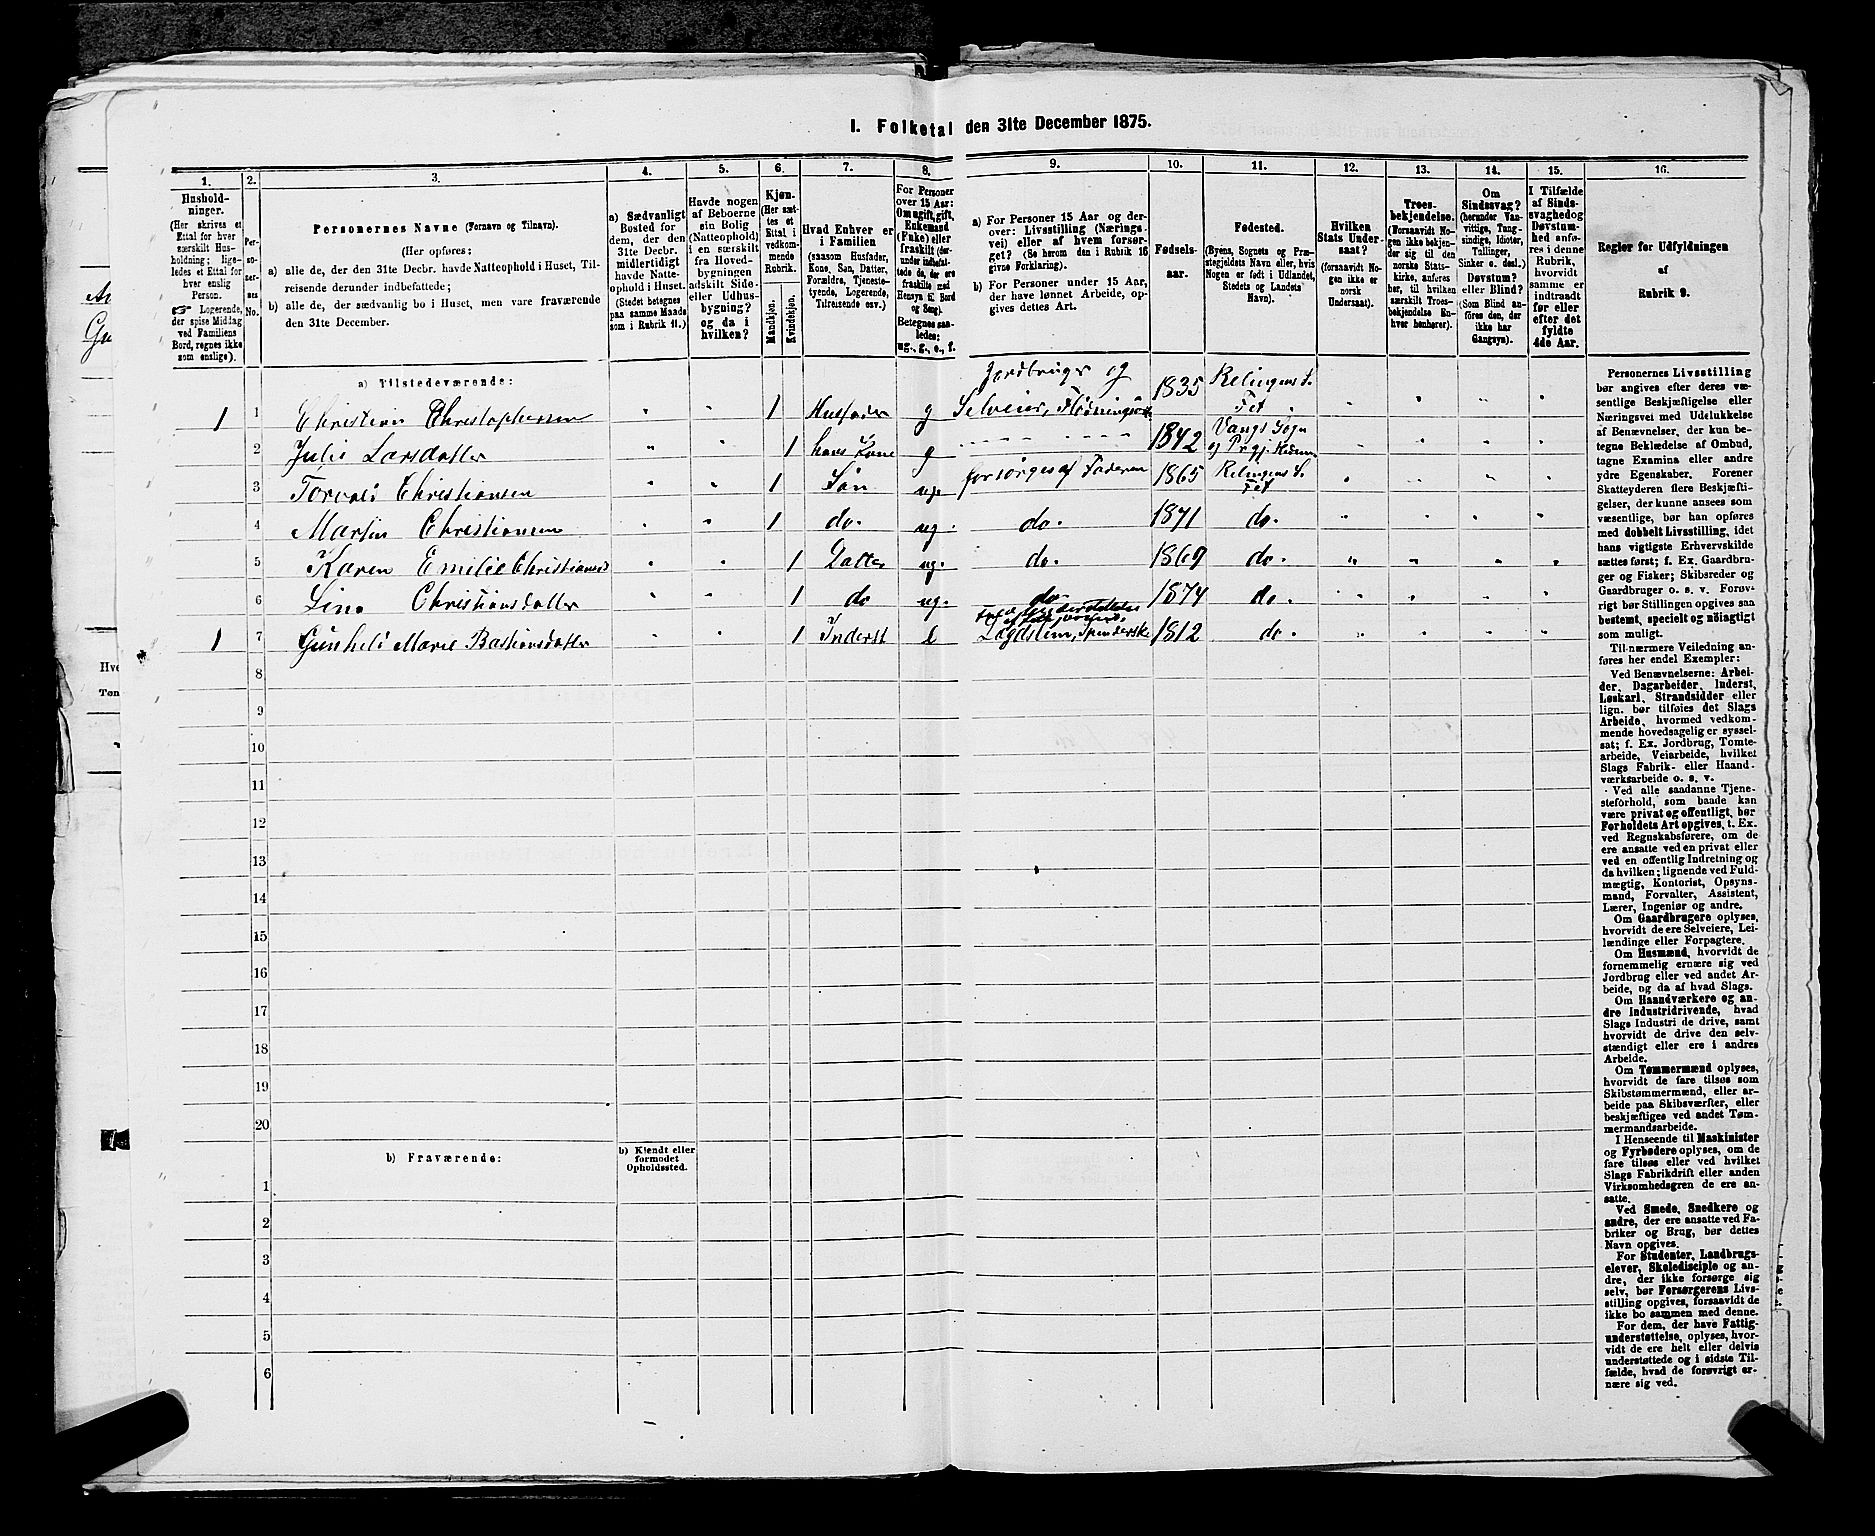 I. Folketal den 31te December 1875.
1.
Hushold-
ninger.
(Her skrives et
Ettal for hver
særskilt Hus-
holdning; lige-
ledes et Ettal for
hver enslig
Person.
☞ Logerende,
der spise Middag
ved Familiens
Bord, regnes ikke
som enslige).
2.
Per-
so-
ner-
nes
No.
3.
Personernes Navne (Fornavn og Tilnavn).
(Her opføres:
a) alle de, der den 31te Decbr. havde Natteophold i Huset, Til-
reisende derunder indbefattede;
b) alle de, der sædvanlig bo i Huset, men vare fraværende
den 31te December.
4.
a) Sædvanligt
Bosted for
dem, der den
31te Decbr.
midlertidigt
havde Natte-
ophold i Huset.
(Stedet betegnes
paa samme Maade
som i Rubrik 11.)
5.
Havde nogen
af Beboerne
sin Bolig
(Natteophold)
i en særskilt
fra Hoved-
bygningen
adskilt Side-
eller Udhus-
bygning?
og da i
hvilken?
6.
Kjøn.
(Her sæt-
tes et
Ettal i
vedkom-
mende
Rubrik.
Mandkjøn.
Kvindekjøn.
7.
Hvad Enhver er
i Familien
(saasom Husfader,
Kone, Søn, Datter,
Forældre, Tjeneste-
tyende, Logerende,
Tilreisende osv.)
8.
For Personer
over 15 Aar:
Om ugift, gift,
Enkemand
(Enke) eller
fraskilt (der-
under indbefat-
tede de, der ere
fraskilte med
Hensyn til Bord
og Seng).
Betegnes saa-
ledes:
ug., g., e., f.
9.
a) For Personer 15 Aar og der-
over: Livsstilling (Nærings-
vei) eller af hvem forsør-
get? (Se herom den i Rubrik 16
givne Forklaring).
b) For Personer under 15 Aar,
der have lønnet Arbeide, op-
gives dettes Art.
10.
Fødsels-
aar.
11.
Fødested.
(Byens, Sognets og Præ-
stegjeldets Navn eller, hvis
Nogen er født i Udlandet,
Stedets og Landets
Navn).
12.
Hvilken
Stats Under-
saat?
(forsaavidt No-
gen ikke er
norsk
Undersaat).
13.
Troes-
bekjendelse.
(Forsaavidt No-
gen ikke bekjen-
der sig til den
norske Stats-
kirke, anføres
her, til hvilken
særskilt Troes-
bekjendelse En-
hver henhører).
14.
Om
Sindssvag?
(herunder Van-
vittige, Tung-
sindige, Idioter,
Tullinger,
Sinker o. desl.).
Døvstum?
eller Blind?
(Som Blind an-
føres den, der
ikke har
Gangsyn).
15.
I Tilfælde
af Sinds-
svaghed og
Døvstum-
hed anfø-
res i denne
Rubrik,
hvorvidt
samme er
indtraadt
før eller
efter det
fyldte
4de Aar.
16.
Regler for Udfyldningen
af
Rubrik 9.
a) Tilstedeværende:
1 1 Christian Christophersen 1 Husfader g Jordbruger og Selveier, 1835 Relingens S. Fet
2 Julie Larsdatter 1 hans Kone g 1842 Vangs Sogn og Prgj.
3 Torvald Christiansen 1 Søn ug. forsørges af Faderen 1865 Relingens S. Fet
4 Martin Christiansen 1 do. ug. do. 1871 do.
5 Karen Emilie Christiansd 1 Datter ug. do. 1867 do.
6 Lina Christiansdatter 1 do ug. do 1874 do.
1 7 Gunhild Marie Bastiansdatter 1 Inderst e Lægdslem, 1812 do.
8
9
10
11
12
13
14
15
16
17
18
19
20
b) Fraværende:
b) Kjendt eller
formodet
Opholdssted.
1
2
3
4
5
6
Personernes Livsstilling
bør angives efter deres væ-
sentlige Beskjæftigelse eller
Næringsvei med Udelukkelse
af Benævnelser, der kun be-
tegne Beklædelse af Ombud,
tagne Examina eller andre
ydre Egenskaber. Forener
Skatteyderen flere Beskjæfti-
gelser, der kunne ansees som
væsentlige, bør han opføres
med dobbelt Livsstilling, idet
hans vigtigste Erhvervskilde
sættes først; f. Ex. Gaardbru-
ger og Fisker; Skibsreder og
Gaardbruger o. s. v. Forøv-
rigt bør Stillingen opgives saa
bestemt, specielt og nöiagtigt
som muligt.
Til nærmere Veiledning an-
føres her endel Exempler:
Ved Benævnelserne: Arbei-
der, Dagarbeider, Inderst,
Løskarl, Strandsidder eller
lign. bør tilføies det Slags
Arbeide, hvormed vedkom-
mende hovedsagelig er syssel-
sat; f. Ex. Jordbrug, Tomte-
arbeide, Veiarbeide, hvilket
Slags Fabrik- eller Haand-
værksarbeide o. s. v.
Ved alle saadanne Tjene-
steforhold, som baade kan
være privat og offentligt, bør
Forholdets Art opgives, t. Ex.
ved Regnskabsførere, om de
ere ansatte ved en privat eller
ved en offentlig Indretning og
da hvilken; lignende ved Fuld-
mægtig, Kontorist, Opsyns-
mand, Forvalter, Assistent,
Lærer, Ingeniør og andre.
Om Gaardbrugere oplyses,
hvorvidt de ere Selveiere, Lei-
lændinge eller Forpagtere.
Om Husmænd, hvorvidt de
fornemmelig ernære sig ved
Jordbrug eller ved andet Ar-
beide, og da af hvad Slags.
Om Haandværkere og an-
dre Industridrivende, hvad
Slags Industri de drive, samt
hvorvidt de drive den selv-
stændigt eller ere i andres
Arbeide.
Om Tømmermænd oplyses,
hvorvidt de fare tilsøs som
Skibstømmermænd, eller ar-
beide paa Skibsværfter, eller
beskjæftiges ved andet Tøm-
mermandsarbeide.
I Henseende til Maskinister
og Fyrbødere oplyses, om de
fare tilsøs eller ved hvilket
Slags Fabrikdrift eller anden
Virksomhedsgren de ere an-
satte.
Ved Smede, Snedkere og
andre, der ere ansatte ved Fa-
briker og Brug, bør dettes
Navn opgives.
For Studenter, Landbrugs-
elever, Skoledisciple og an-
dre, der ikke forsørge sig
selv, bør Forsørgerens Livs-
stilling opgives, forsaavidt de
ikke bo sammen med denne.
For dem, der have Fattig-
understøttelse, oplyses, hvor-
vidt de ere helt eller delvis
understøttede og i sidste Til-
fælde, hvad de forøvrigt er-
nære sig ved.